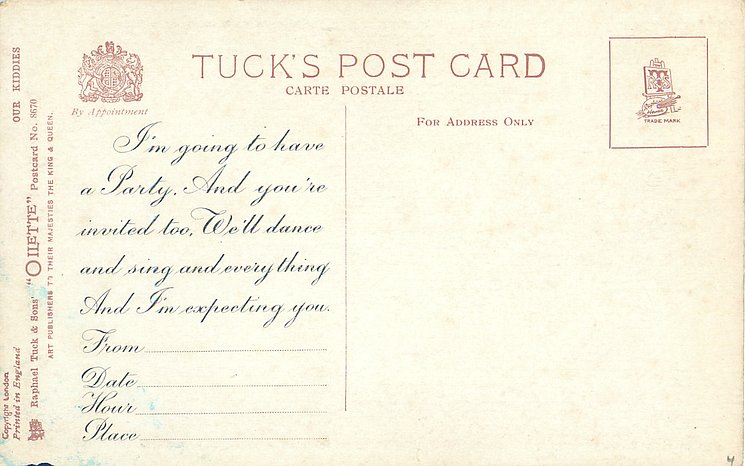 TUCK'S POST CARD
CARTE POSTALE
By Appointment
FOR ADDRESS ONLY
TRADE MARK
I'm going to have
a Party. And you're
invited too, We'll dance
and sing and everything
And I'm expecting you.
From
Date
Hour
Place
OUR KIDDIES
Raphael Tuck & Sons' "OILETTE" Postcard No. 8670
ART PUBLISHERS TO THEIR MAJESTIES THE KING & QUEEN.
Copyright London
Printed in England